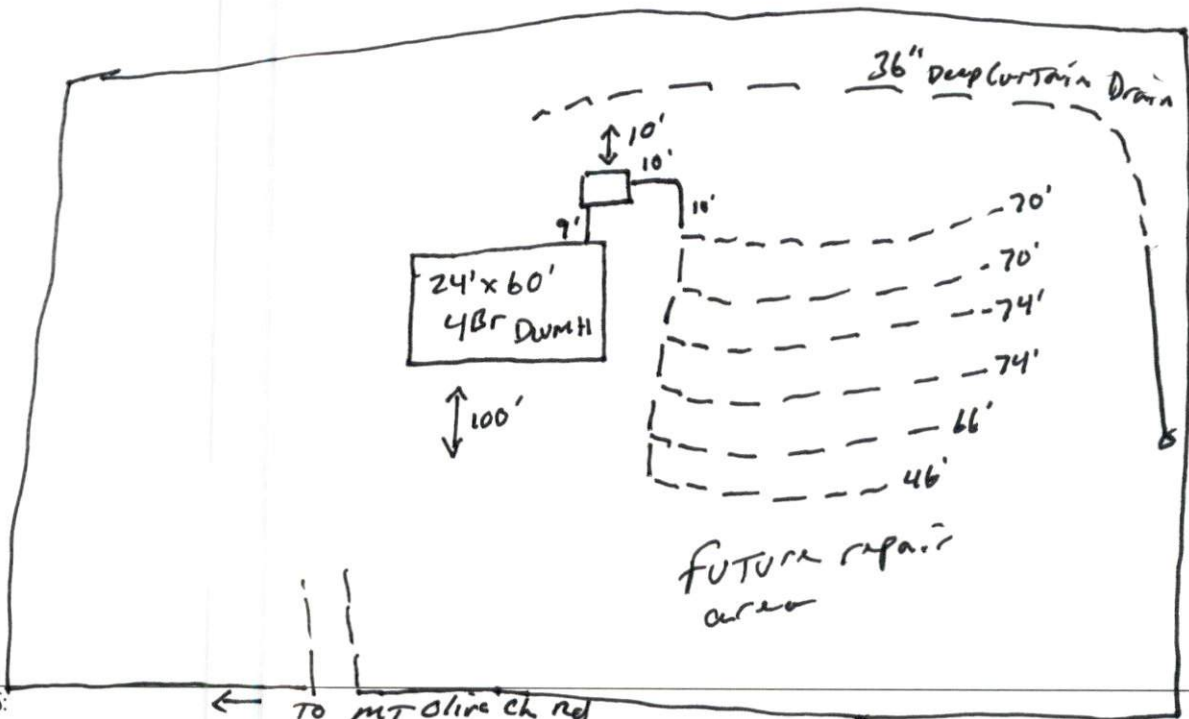 36" Deep Curtain Drain
10'
10'
10'
9'
24' x 60'
4Br DWMH
100'
70'
70'
74'
74'
66'
46'
future repair
area
To MT Olive Ch Rd